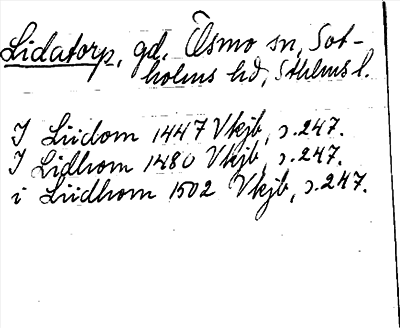 Lidatorp, gd, Ösmo sn, Sot-
holms hd, Sthlms l.
I Liidom 1447 Vkjb, s.247.
I Lidhom 1480 Vkjb, s.247.
i Liidhom 1502 Vkjb, s.247.